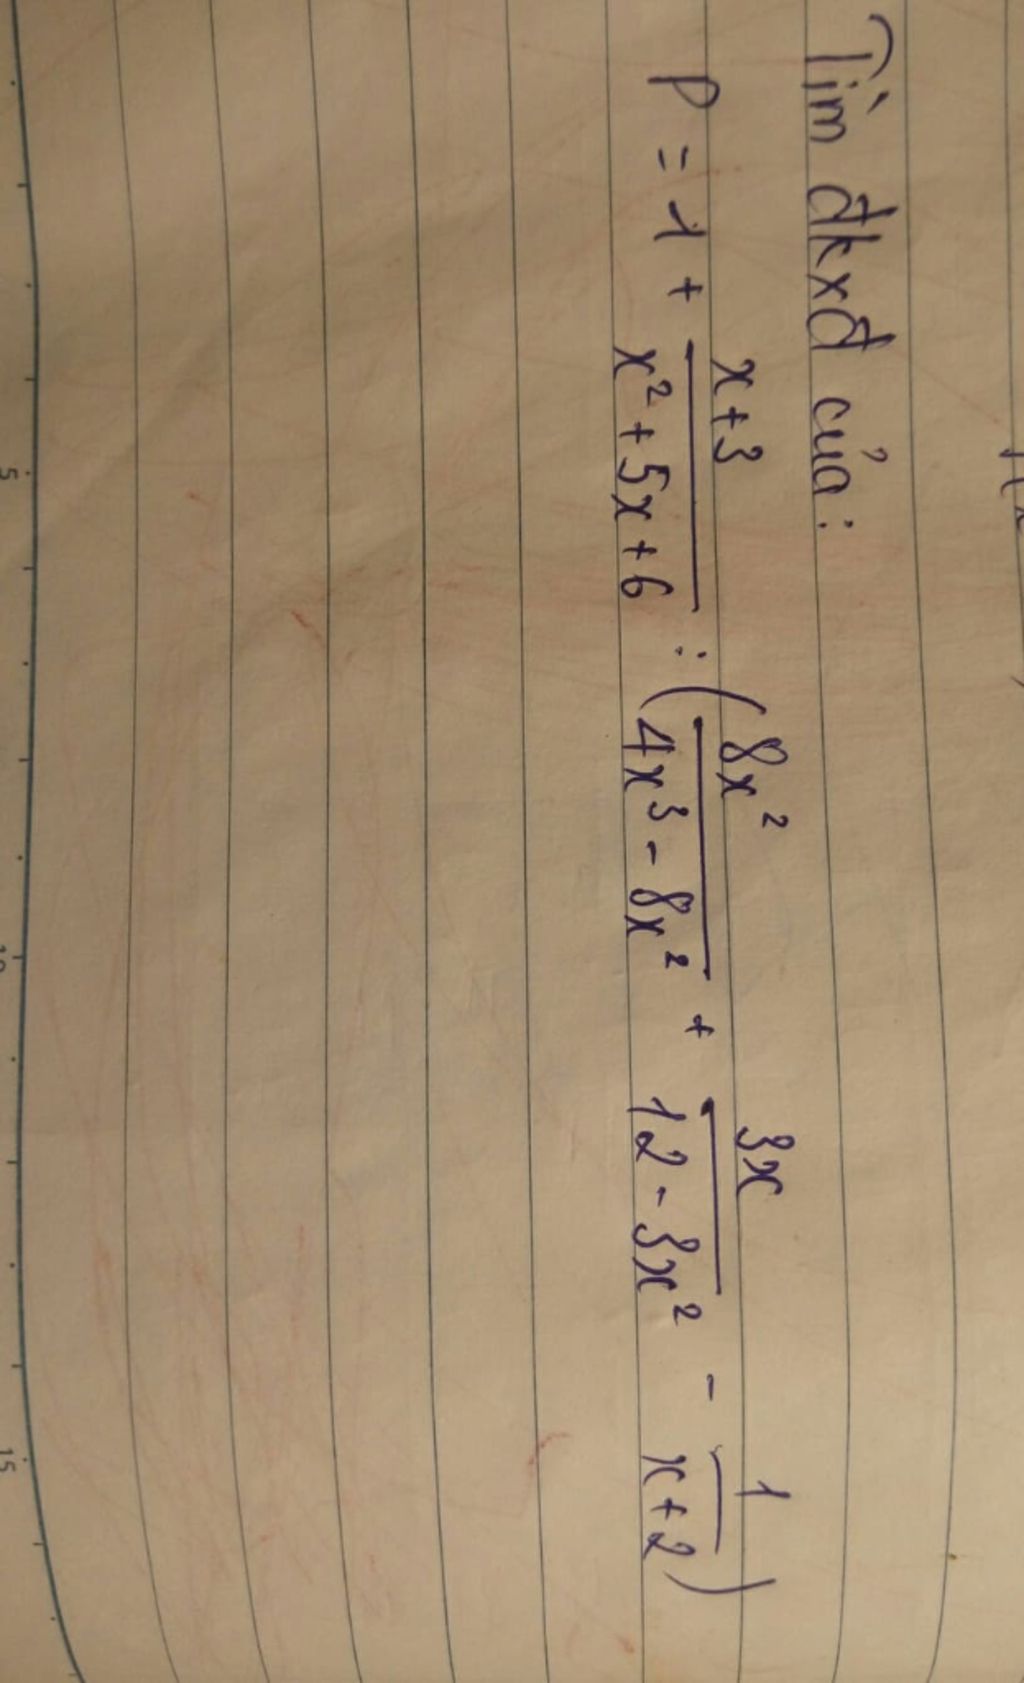 Tìm đkxđ của:
P = 1 + \frac{x+3}{x²+5x+6} : ( \frac{8x²}{4x³-8x²} + \frac{3x}{12-3x²} - \frac{1}{x+2} )
5
10
15